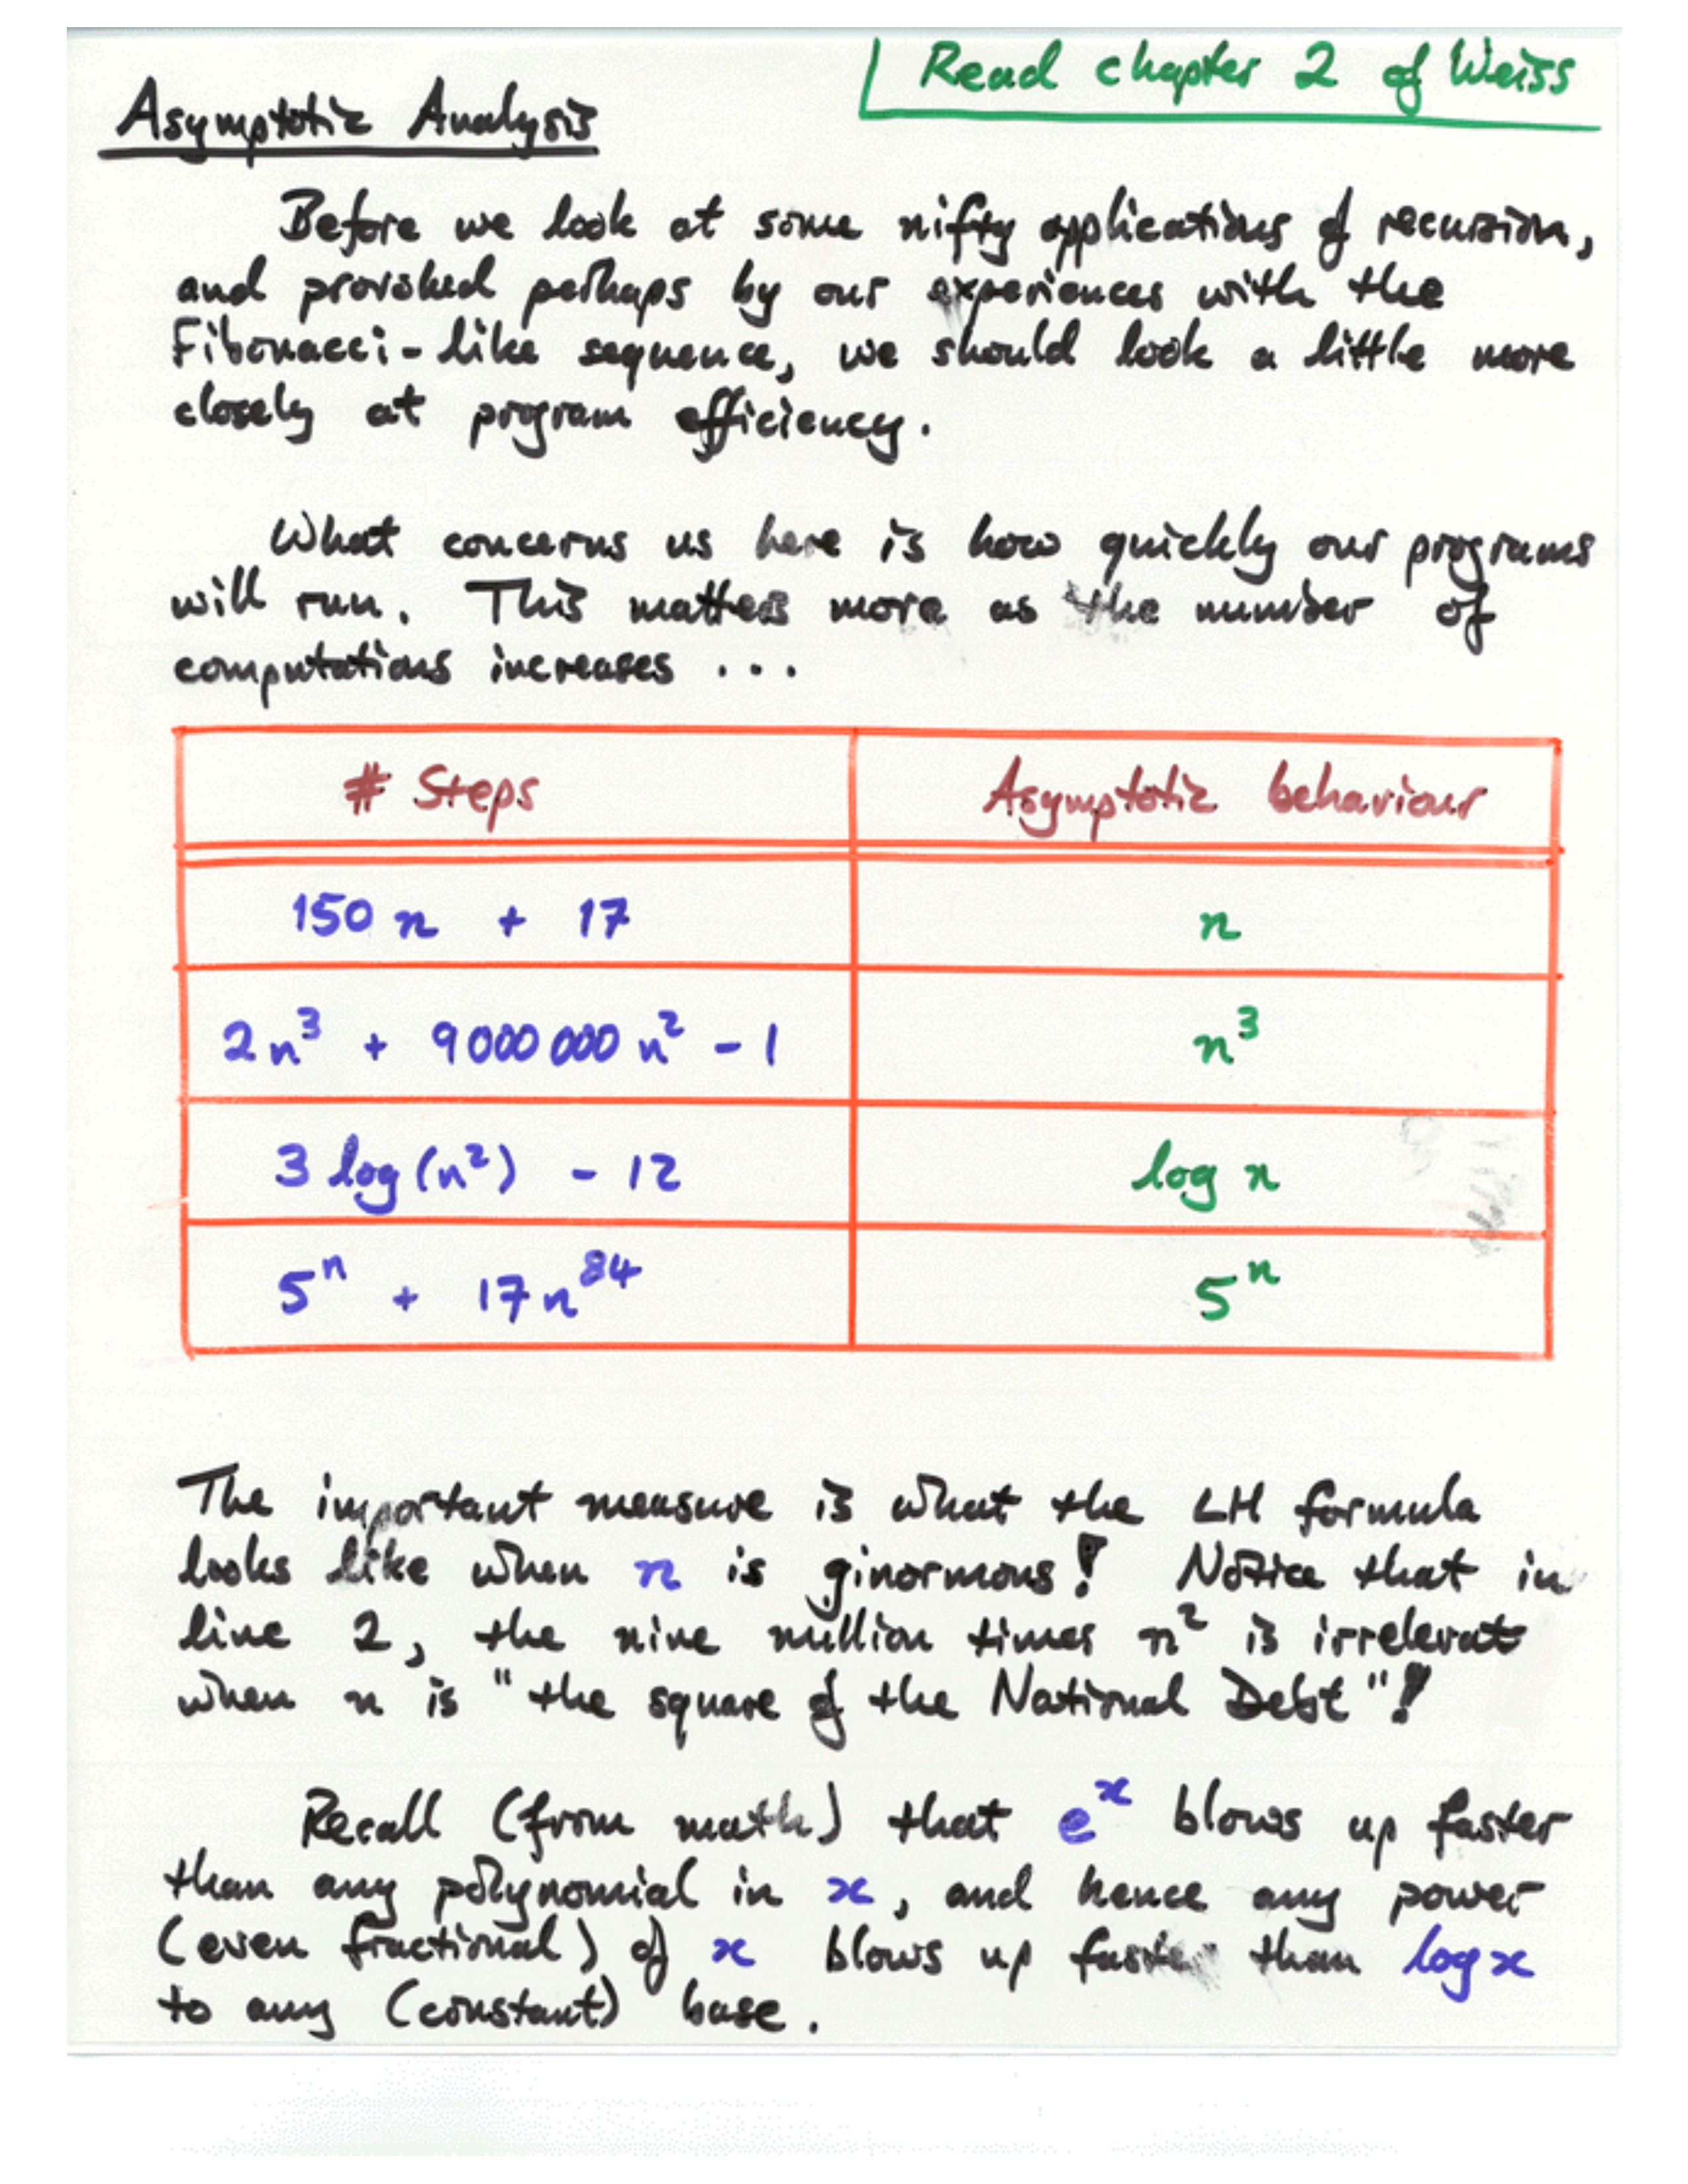 Read chapter 2 of Weiss
Asymptotic Analysis
Before we look at some nifty applications of recursion,
and provoked perhaps by our experiences with the
Fibonacci-like sequence, we should look a little more
closely at program efficiency.
What concerns us here is how quickly our programs
will run. This matters more as the number of
computations increases ...
# Steps Asymptotic behaviour
150 n + 17 n
2n³ + 9000 000 n² - 1 n³
3 log (n²) - 12 log n
5ⁿ + 17 n⁸⁴ 5ⁿ
The important measure is what the LH formula
looks like when n is ginormous! Notice that in
line 2, the nine million times n² is irrelevat
when n is "the square of the National Debt"!
Recall (from math) that eˣ blows up faster
than any polynomial in x, and hence any power
(even fractional) of x blows up faster than log x
to any (constant) base.